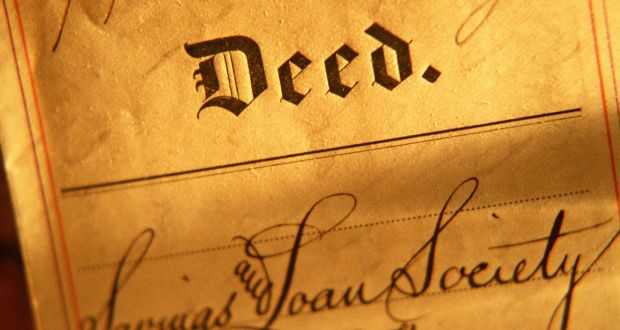 Deed.
Savings and Loan Society